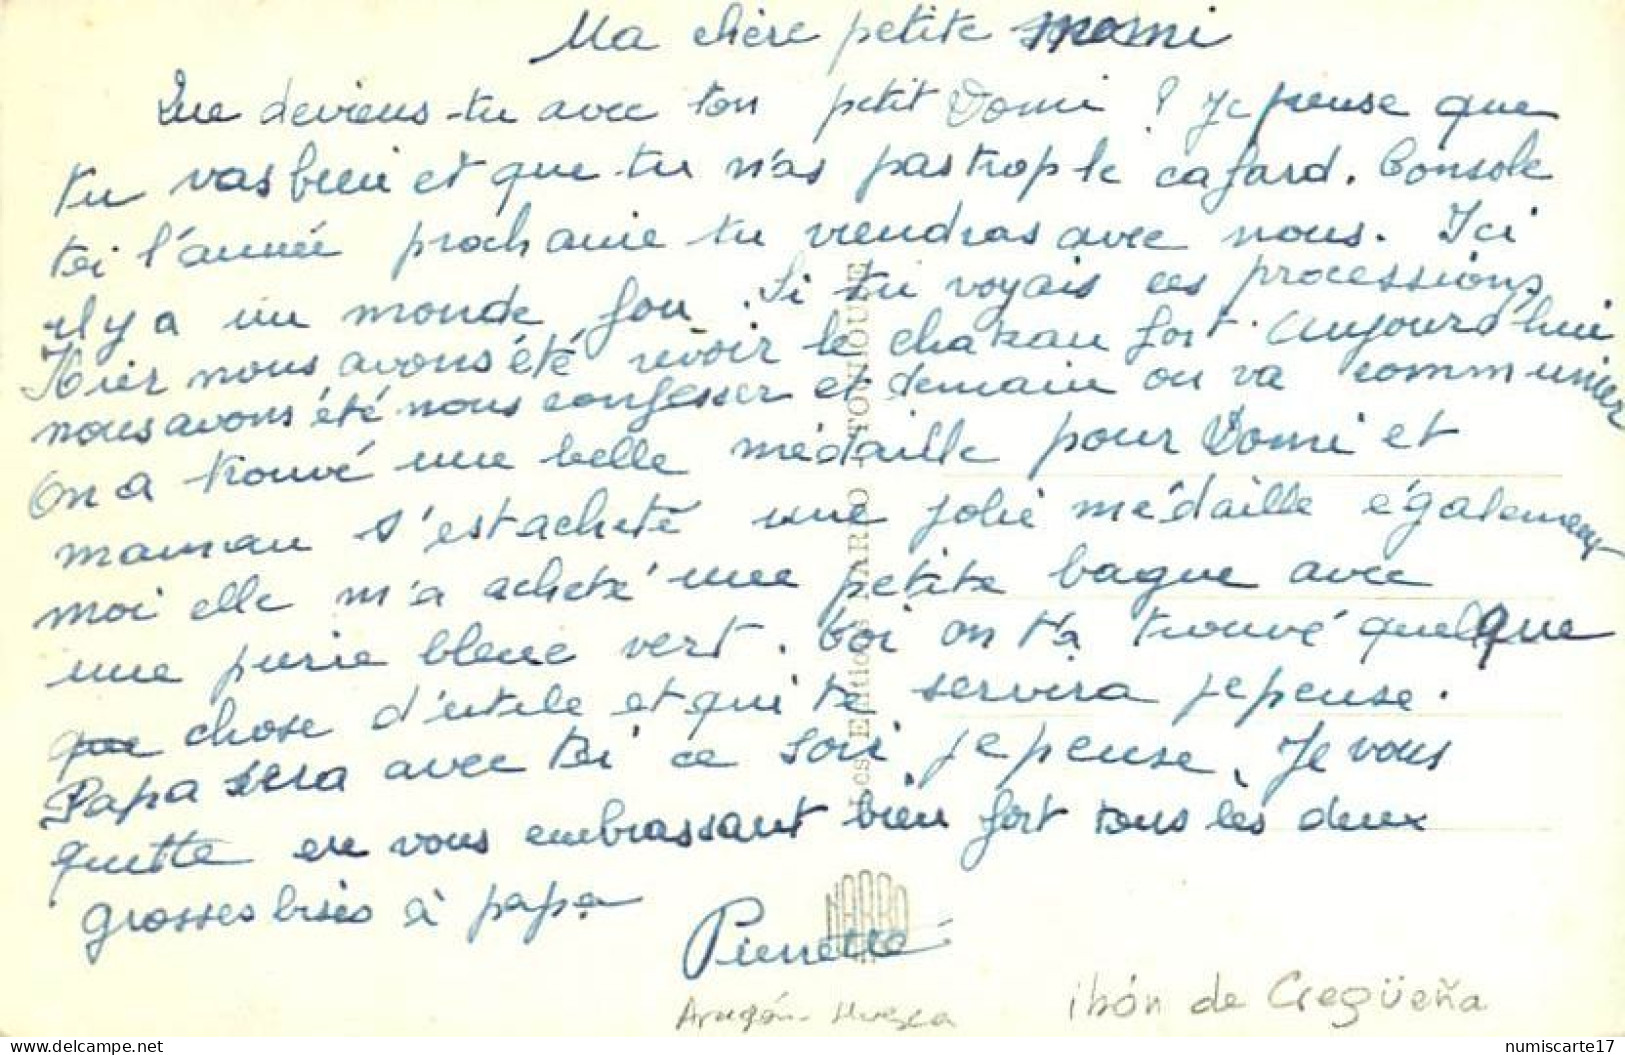 Ma chère petite momi
Que deviens-tu avec ton petit Domi ? Je pense que
tu vas bien et que tu n'as pas trop le cafard. Console
toi l'année prochaine tu viendras avec nous. Ici
il y a un monde fou. Si tu voyais ces processions
Hier nous avons été revoir le chateau fort. Aujourd'hui
nous avons été nous confesser et demain on va communier
On a trouvé une belle médaille pour Domi et
maman s'est acheté une jolie médaille également
moi elle m'a acheté une petite bague avec
une pierre bleue vert. Toi on t'a trouvé quelque
que chose d'utile et qui te servira je pense.
Papa sera avec toi ce soir je pense. Je vous
quitte en vous embrassant bien fort tous les deux
grosses bises à papa
Pierrette
Les Editions NARBO - TOULOUSE
NARBO
Aragón - Huesca
ibón de Cregüeña
https://www.delcampe.net
numiscarte17